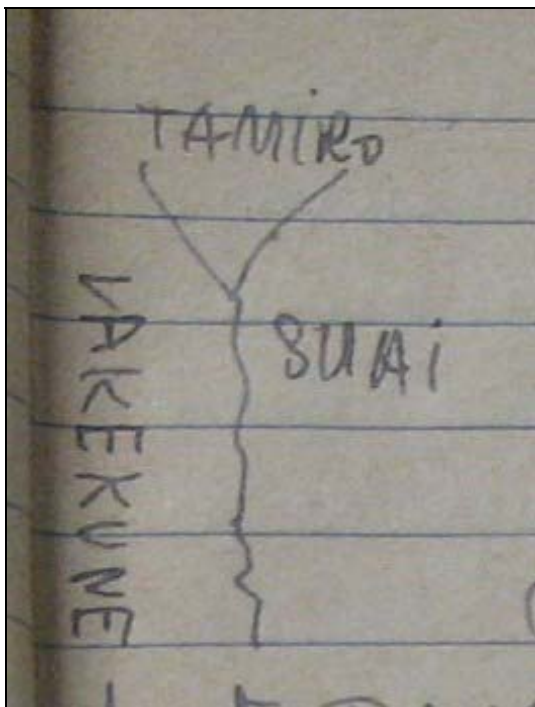 TAMiRO
SUAi
LAKEKUNE